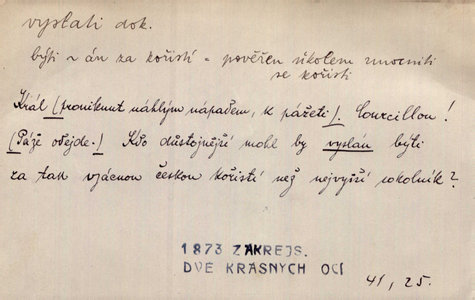 vyslati dok.
býti ~ án za kořistí = pověřen úkolem zmocniti
se kořisti
Král (proniknut náhlým nápadem, k pážeti). Courcillon!
(Páže odejde.) Kdo důstojnější mohl by vyslán býti
za tak vzácnou českou kořistí než nejvyšší sokolník?
1873 ZÁKREJS.
DVĚ KRÁSNÝCH OČÍ
41, 25.